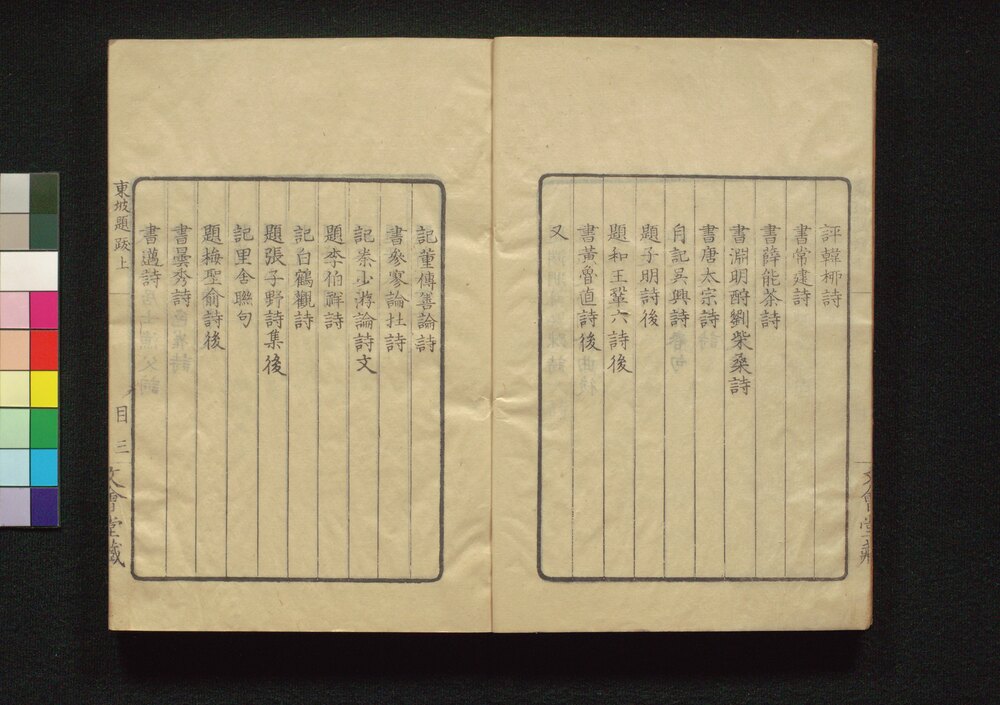 評韓柳詩
書常建詩
書薛能茶詩
書淵明酧劉柴桑詩
書唐太宗詩
自記吴興詩
題子明詩後
題和王鞏六詩後
書黃魯直詩後
又
文會堂藏
記董傳善論詩
書參寥論杜詩
記秦少游論詩文
題李伯祥詩
記白鶴觀詩
題張子野詩集後
記里舍聯句
題梅聖俞詩後
書曇秀詩
書邁詩
東坡題跋上
目 三
文會堂藏